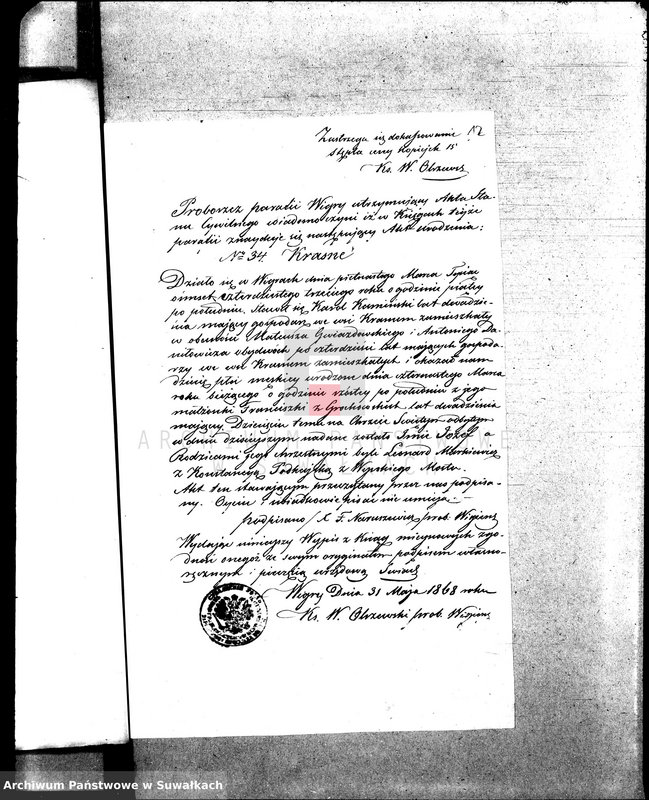 Zastrzega się dokasowanie 12
stępla ceny kopiejek 15
Ks. W. Olszews
Proboszcz parafii Wigry utrzymujący Akta Sta-
nu Cywilnego wiadomo czyni iż w Księgach tejże
parafii znajduje się następujący Akt urodzenia:
No 34 Krasne
Działo się w Wigrach dnia piętnastego Marca Tysiąc
ośmset czterdziestego trzeciego roku o godzinie piątej
po południu. Stawił się Karol Kamiński lat dwadzie-
ścia mający gospodarz we wsi Krasnem zamieszkały
w obecności Mateusza Gwiazdowskiego i Antoniego Da-
niłowicza obydwóch po czterdzieści lat mających gospoda-
rzy we wsi Krasnem zamieszkałych i okazał nam
dziecię płci męskiej urodzone dnia czternastego Marca
roku bieżącego o godzinie szóstej po południu z jego
małżonki Franciszki z lat dwadzieścia
mającej. Dziecięciu temu na Chrzcie Świętym odbytym
w dniu dzisiejszym nadane zostało Imie Józef
Rodzicami jego chrzestnymi byli Leonard Markiewicz
z Konstancyą z Wysokiego Mostu.
Akt ten stawającym przeczytany przez nas podpisa-
ny. Ojciec i świadkowie pisać nie umieją.
Podpisano / X F. Naruszewicz prob. Wigiers
Wydając niniejszy Wypis z Ksiąg miejscowych zgo-
dność onegoż ze swym oryginałem podpisem własno-
ręcznym i pieczęcią urzędową
Wigry Dnia 31 Maja 1868 roku
Ks. W. Olszewski prob. Wigiers
Archiwum Państwowe w Suwałkach